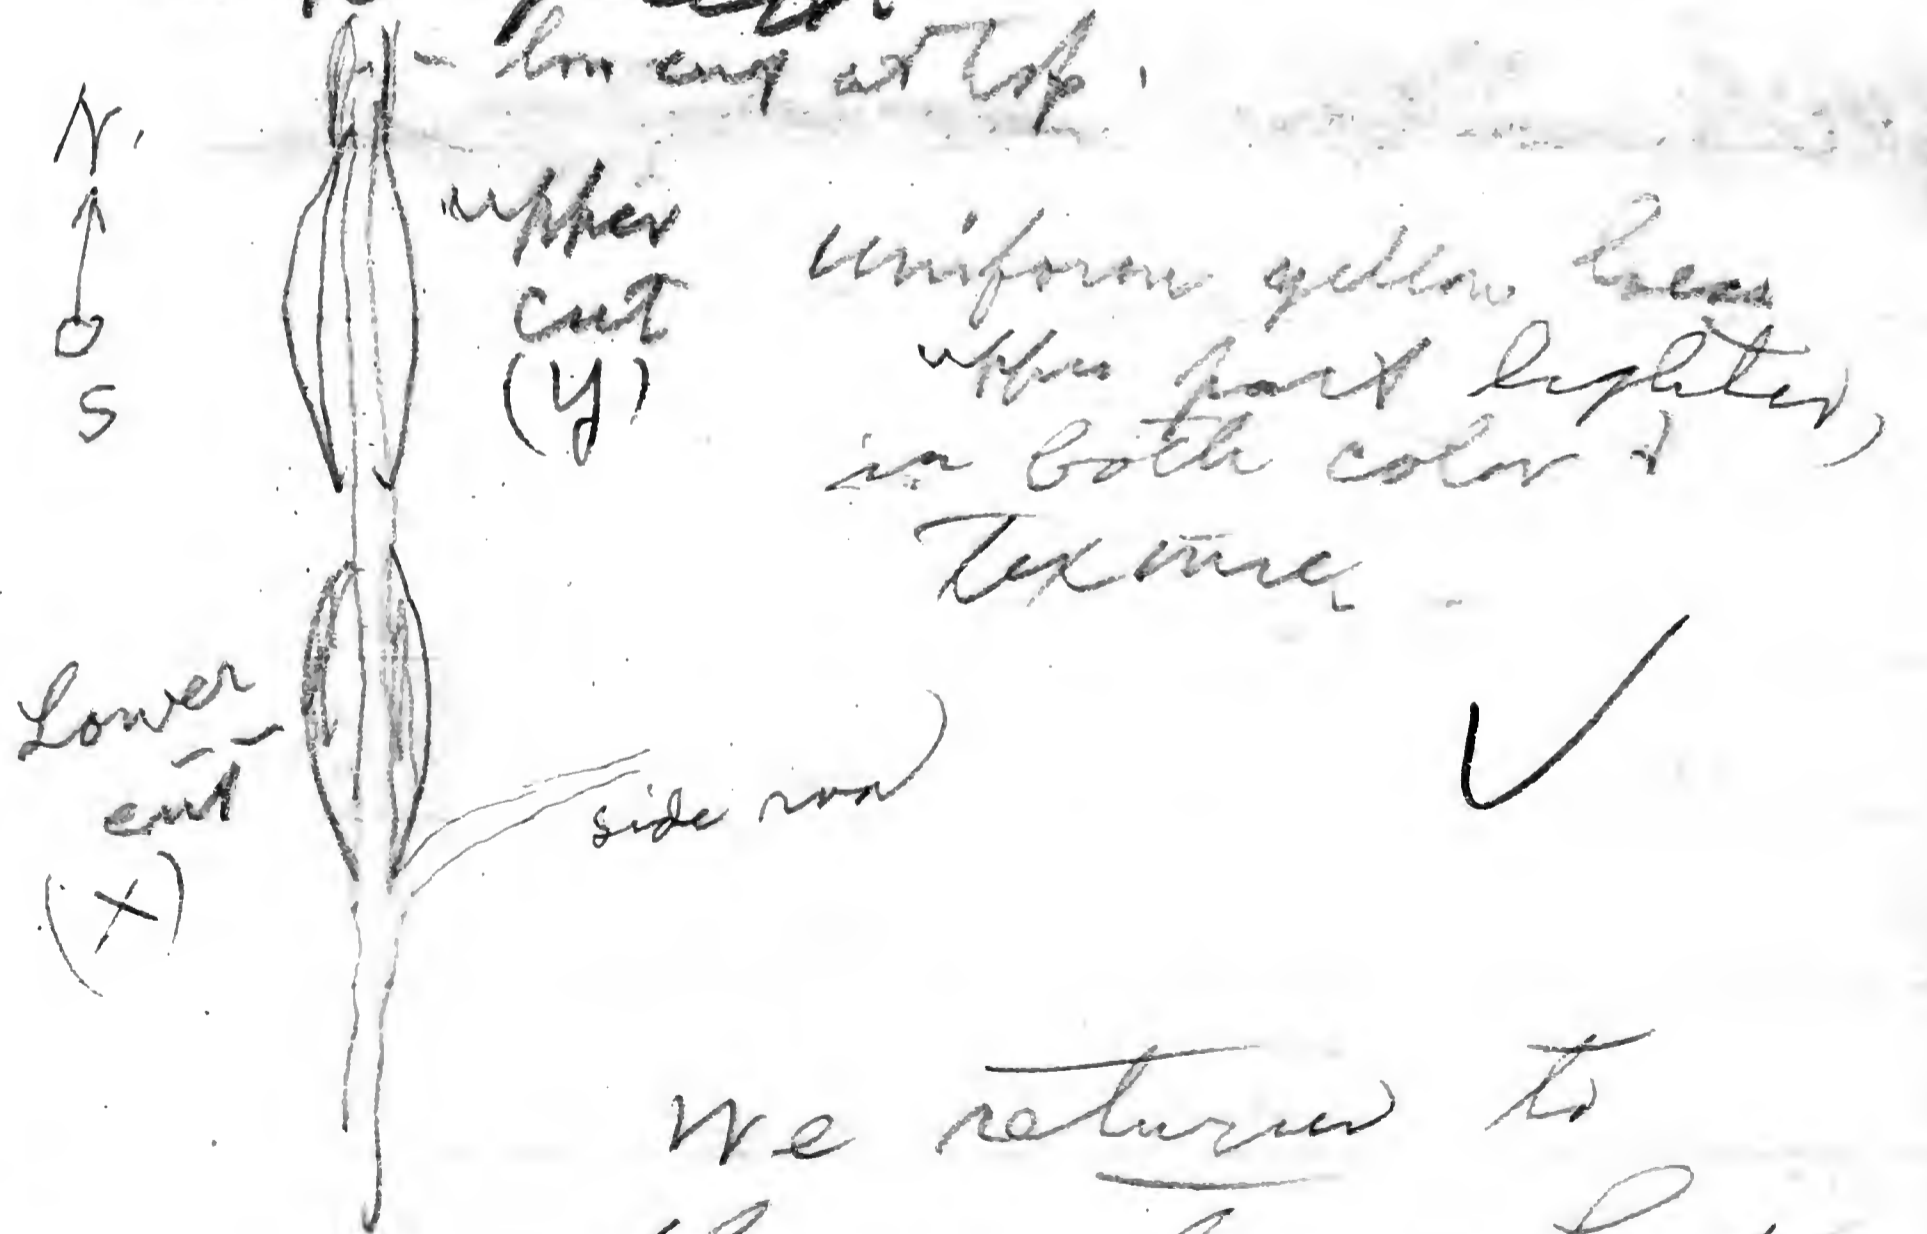 - low cut at top.
N.
upper
cut
(y)
S
uniform yellow loess
upper part lighter,
in both color &
texture
Lower
cut
(X)
side road
We returned to